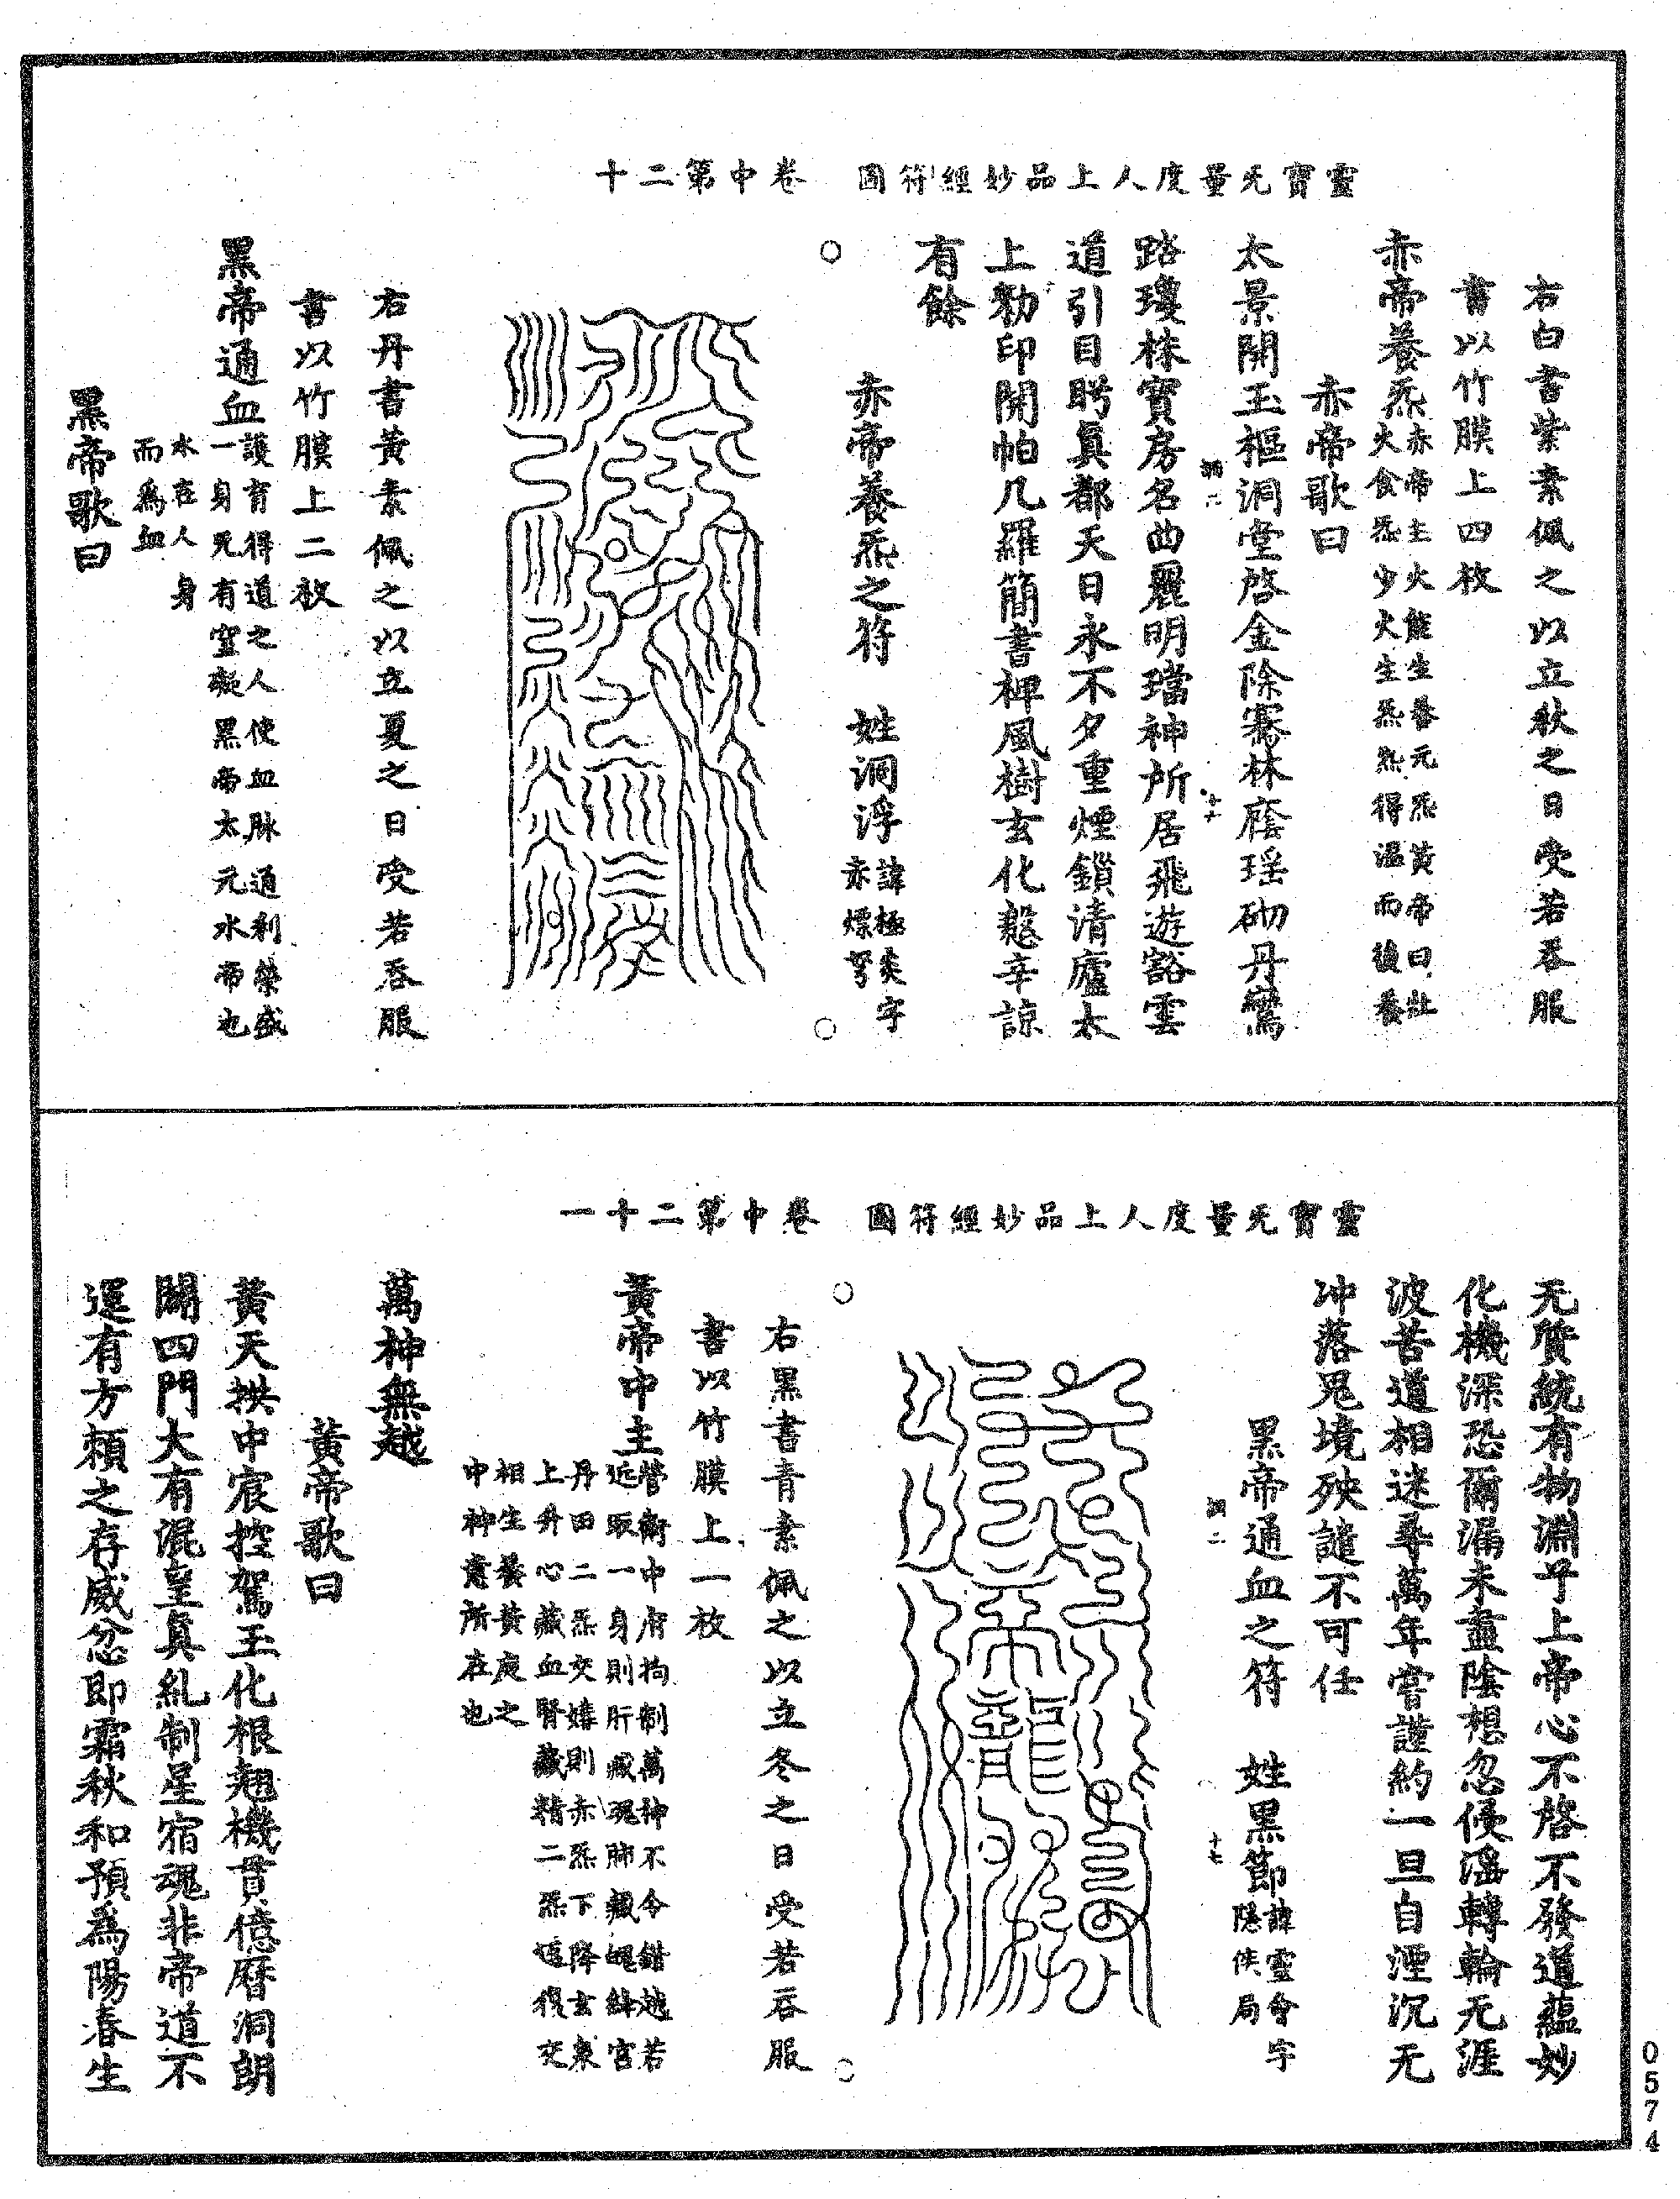 靈寶无量度人上品妙經符圖　卷中第二十
右白書紫素佩之以立秋之日受若吞服
書以竹膜上四枚
赤帝養炁赤帝主火能生養元炁黃帝曰壯
火食炁少火生炁炁得溫而後養
赤帝歌曰
太景開玉樞洞堂啓金除騫林䕃瑤砌丹鸞
路瓊株寶房名曲麗明璫神所居飛遊豁雲
道引目眄眞都天日永不夕重煙鎖清廬太
上勑印開帕几羅簡書椑風樹玄化懃辛諒
有餘
赤帝養炁之符　姓洞浮諱極炎字
赤熛弩
右丹書黃素佩之以立夏之日受若吞服
書以竹膜上二枚
黑帝通血護育得道之人使血脉通利榮盛
一身无有窒礙黑帝太元水帝也
水在人身
而爲血
黑帝歌曰
靈寶无量度人上品妙經符圖　卷中第二十一
无質統有物淵乎上帝心不啓不發道蘊妙
化機深恐爾漏未盡陰想忽侵滛轉輪无涯
波苦道相迷尋萬年嘗謹約一旦自湮沉无
冲落鬼境殃譴不可任
黑帝通血之符　姓黑節諱靈會字
隱俠局
右黑書青素佩之以立冬之日受若吞服
書以竹膜上一枚
黃帝中主營衛中府拘制萬神不令錯越若
近取一身則肝藏魂肺藏魄絳宮
丹田二炁交嬉則赤炁下降玄泉
上升心藏血腎藏精二炁逅復交
相生養黃庭之
中神意所在也
萬神無越
黃帝歌曰
黃天拱中宸控駕玉化根翘機貫億曆洞朗
闢四門大有混皇眞糺制星宿魂非帝道不
運有方賴之存威忿即霜秋和預爲陽春生
0574